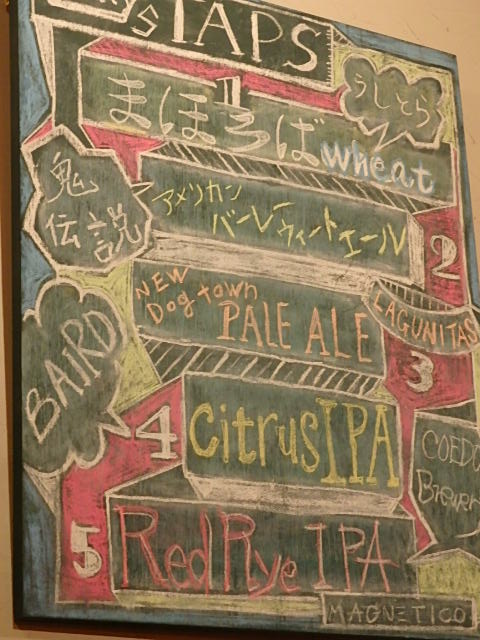 TAPS
1
うしとら
まほろば wheat
鬼伝説
アメリカン
バーレーウィートエール
2
NEW
Dog town
PALE ALE
LAGUNITAS
3
BAIRD
4
Citrus IPA
COEDO
5
Red Rye IPA
MAGNETICO